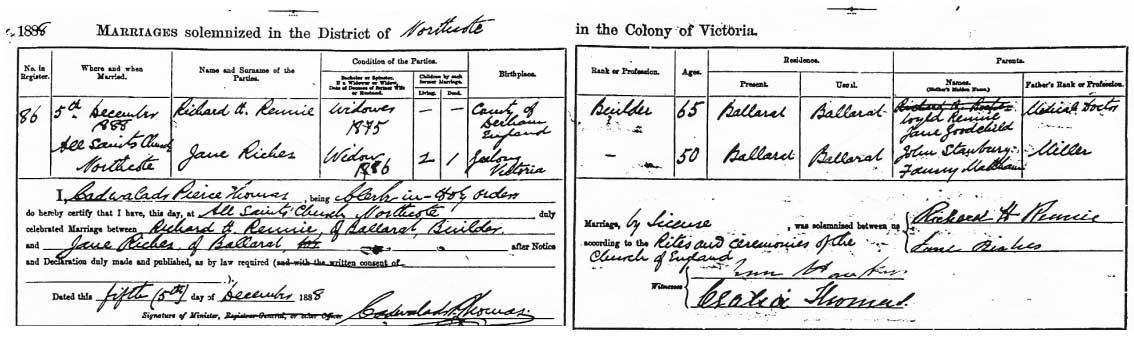 1888 MARRIAGES solemnized in the District of Northcote
No. in Register. | Where and when Married. | Name and Surname of the Parties. | Condition of the Parties. | Birthplace.
Bachelor or Spinster. If a Widower or Widow, Date of Decease of former Wife or Husband. | Children by each former Marriage. Living. Dead.
86 | 5th December 1888 All Saints Church Northcote | Richard H. Rennie | Widower 1875 | — | — | County of Durham England
Jane Riches | Widow 1886 | 2 | 1 | Geelong Victoria
I, Cadwalads Pierce Thomas, being Clerk-in-Holy orders
do hereby certify that I have, this day, at All Saints' Church Northcote duly
celebrated Marriage between Richard H. Rennie, of Ballarat, Builder
and Jane Riches, of Ballarat after Notice
and Declaration duly made and published, as by law required (and with the written consent of
).
Dated this fifth (5th) day of December 1888
Signature of Minister, Registrar-General, or other Officer Cadwalads P. Thomas.
in the Colony of Victoria.
Rank or Profession. | Ages. | Residence. | Parents.
Present. | Usual. | Names. (Mother's Maiden Name.) | Father's Rank or Profession.
Builder | 65 | Ballarat | Ballarat | Rennie Jane Goodchild | Medical Doctor
— | 50 | Ballarat | Ballarat | John Stanbury Fanny | Miller
Marriage, by License, was solemnized between us { Richard H Rennie
according to the Rites and ceremonies of the { Jane Riches
Church of England
Witnesses
Cecilia Thomas.